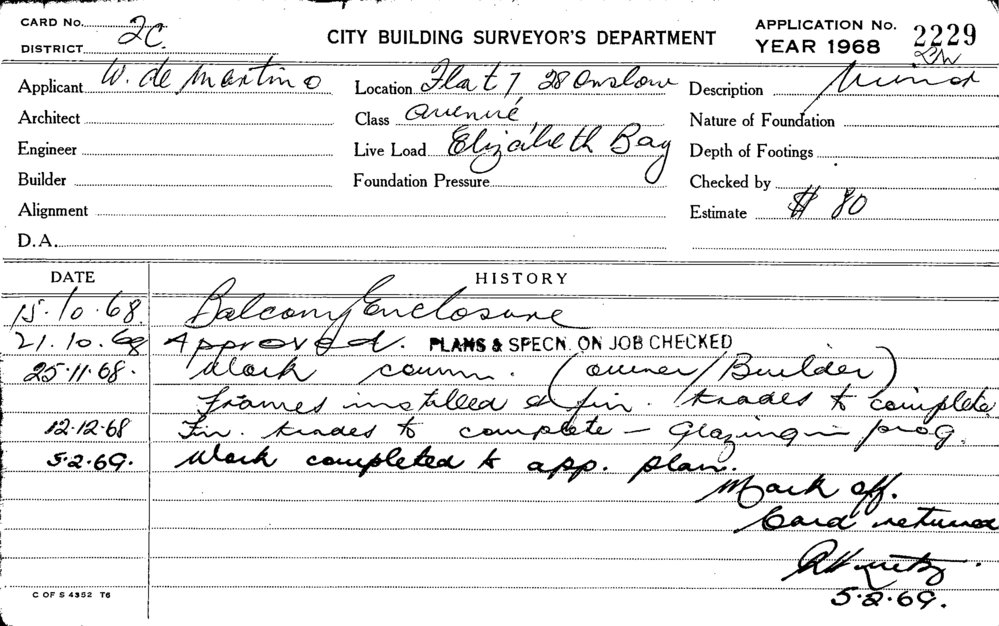 CARD No. 2C.
DISTRICT
CITY BUILDING SURVEYOR'S DEPARTMENT
APPLICATION No. 2229
YEAR 1968
Applicant W. de Martino
Location Flat 7 28 Onslow
Description Minor
Architect
Class avenue,
Nature of Foundation
Engineer
Live Load Elizabeth Bay
Depth of Footings
Builder
Foundation Pressure
Checked by
Alignment
Estimate $ 80
D.A.
DATE HISTORY
15.10.68. Balcony Enclosure
21.10.68 Approved. PLANS & SPECN. ON JOB CHECKED
25.11.68. Work comm. (owner/Builder)
frames installed & fin. trades to complete
12.12.68 Fin. trades to complete – Glazing in prog.
5.2.69. Work completed to app. plan.
Mark off.
Card returned
5.2.69.
C OF S 4352 T6